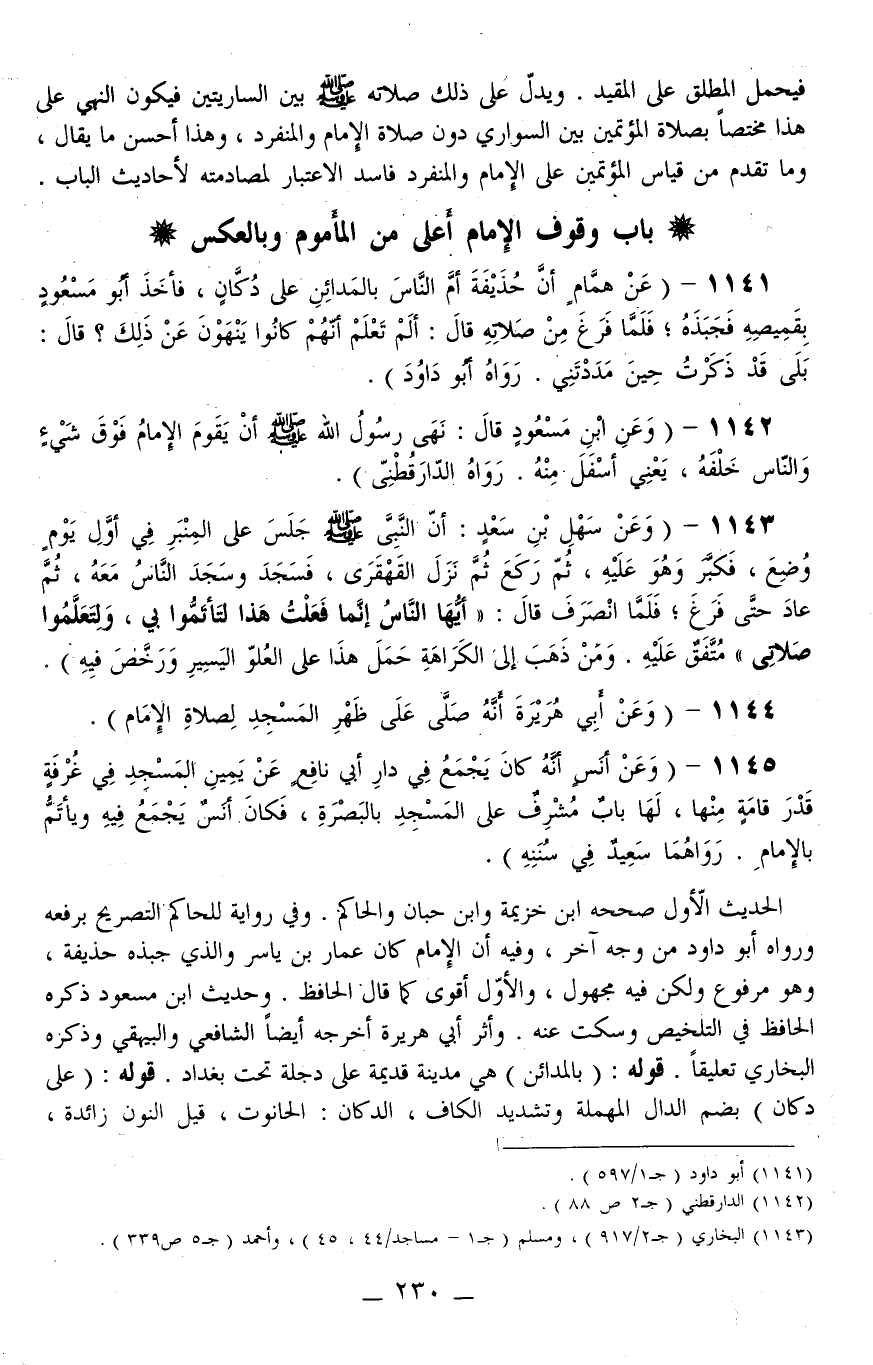 فيحمل المطلق على المقيد . ويدلّ على ذلك صلاته ﷺ بين الساريتين فيكون النهي على
هذا مختصاً بصلاة المؤتمين بين السواري دون صلاة الإمام والمنفرد ، وهذا أحسن ما يقال ،
وما تقدم من قياس المؤتمين على الإمام والمنفرد فاسد الاعتبار لمصادمته لأحاديث الباب .
باب وقوف الإمام أعلى من المأموم وبالعكس
١١٤١ - ( عَنْ همَّامٍ أنَّ حُذَيْفَةَ أمَّ النَّاسَ بالمَدائنِ على دُكَّانٍ ، فأخَذَ أبُو مَسْعُودٍ
بِقَمِيصِهِ فَجَبَذَهُ ؛ فَلَمَّا فَرَغَ مِنْ صَلاتِهِ قالَ : ألَمْ تَعْلَمْ أنَّهُمْ كانُوا يَنْهَوْنَ عَنْ ذَلِكَ ؟ قالَ :
بَلَى قَدْ ذَكَرْتُ حِينَ مَدَدْتَنِي . رَوَاهُ أبُو دَاوُدَ ) .
١١٤٢ - ( وَعَنِ ابْنِ مَسْعُودٍ قالَ : نَهَى رسُولُ الله ﷺ أنْ يَقُومَ الإمامُ فَوْقَ شَيْءٍ
وَالنَّاس خَلْفَهُ ، يَعْنِي أسْفَلَ مِنْهُ . رَوَاهُ الدَّارَقُطْنِىّ ) .
١١٤٣ - ( وَعَنْ سَهْلِ بْنِ سَعْدٍ : أنّ النَّبِىَّ ﷺ جَلَسَ على المِنْبَرِ فِي أوَّلِ يَوْمٍ
وُضِعَ ، فَكَبَّرَ وَهُوَ عَلَيْهِ ، ثُمّ رَكَعَ ثُمَّ نَزَلَ القَهْقَرَى ، فَسَجَدَ وسَجَدَ النَّاسُ مَعَهُ ، ثُمَّ
عادَ حتَّى فَرَغَ ؛ فَلَمَّا انْصَرَفَ قالَ : « أيُّهَا النَّاسُ إنَّما فَعَلْتُ هَذَا لتَأتَمُّوا بِي ، وَلِتَعَلَّمُوا
صَلاتِى » مُتَّفَقٌ عَلَيْهِ . وَمَنْ ذَهَبَ إلىَ الكَرَاهَةِ حَمَلَ هذَا على العُلوّ اليَسِيرِ وَرَخَّصَ فِيهِ ) .
١١٤٤ - ( وَعَنْ أَبِي هُرَيْرَةَ أَنَّهُ صَلَّى عَلَى ظَهْرِ المَسْجِدِ لِصلاةِ الإمَام ) .
١١٤٥ - ( وَعَنْ أنَسٍ أنَّهُ كانَ يَجْمَعُ فِي دارِ أبي نافِعٍ عَنْ يَمِينِ المَسْجِدِ فِي غُرْفَةٍ
قَدْرَ قامَةٍ مِنْها ، لَهَا بابٌ مُشْرِفٌ على المَسْجِدِ بالبَصْرَةِ ، فَكانَ أنَسٌ يَجْمَعُ فِيهِ ويأتَمُّ
بالإمامِ . رَوَاهُمَا سَعِيدٌ فِي سُنَنِهِ ) .
الحديث الأول صححه ابن خزيمة وابن حبان والحاكم . وفي رواية للحاكم التصريح برفعه
ورواه أبو داود من وجه آخر ، وفيه أن الإمام كان عمار بن ياسر والذي جبذه حذيفة ،
وهو مرفوع ولكن فيه مجهول ، والأوّل أقوى كما قال الحافظ . وحديث ابن مسعود ذكره
الحافظ في التلخيص وسكت عنه . وأثر أبي هريرة أخرجه أيضاً الشافعي والبيهقي وذكره
البخاري تعليقاً . قوله : ( بالمدائن ) هي مدينة قديمة على دجلة تحت بغداد . قوله : ( على
دكان ) بضم الدال المهملة وتشديد الكاف ، الدكان : الحانوت ، قيل النون زائدة ،
(١١٤١) أبو داود ( جـ٥٩٧/١ ) .
(١١٤٢) الدارقطني ( جـ٢ ص ٨٨ ) .
(١١٤٣) البخاري ( جـ٩١٧/٢ ) ، ومسلم ( جـ١ - مساجد/٤٤ ، ٤٥ ) ، وأحمد ( جـ٥ ص٣٣٩ ) .
ــ ٢٣٠ ــ